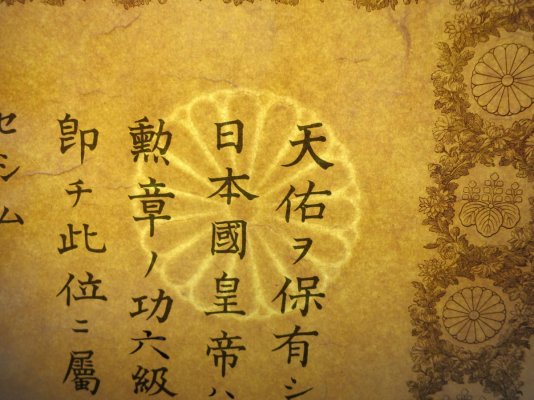 天佑ヲ保有シ
日本國皇帝ハ
勲章ノ功六級
即チ此位ニ屬
セシム